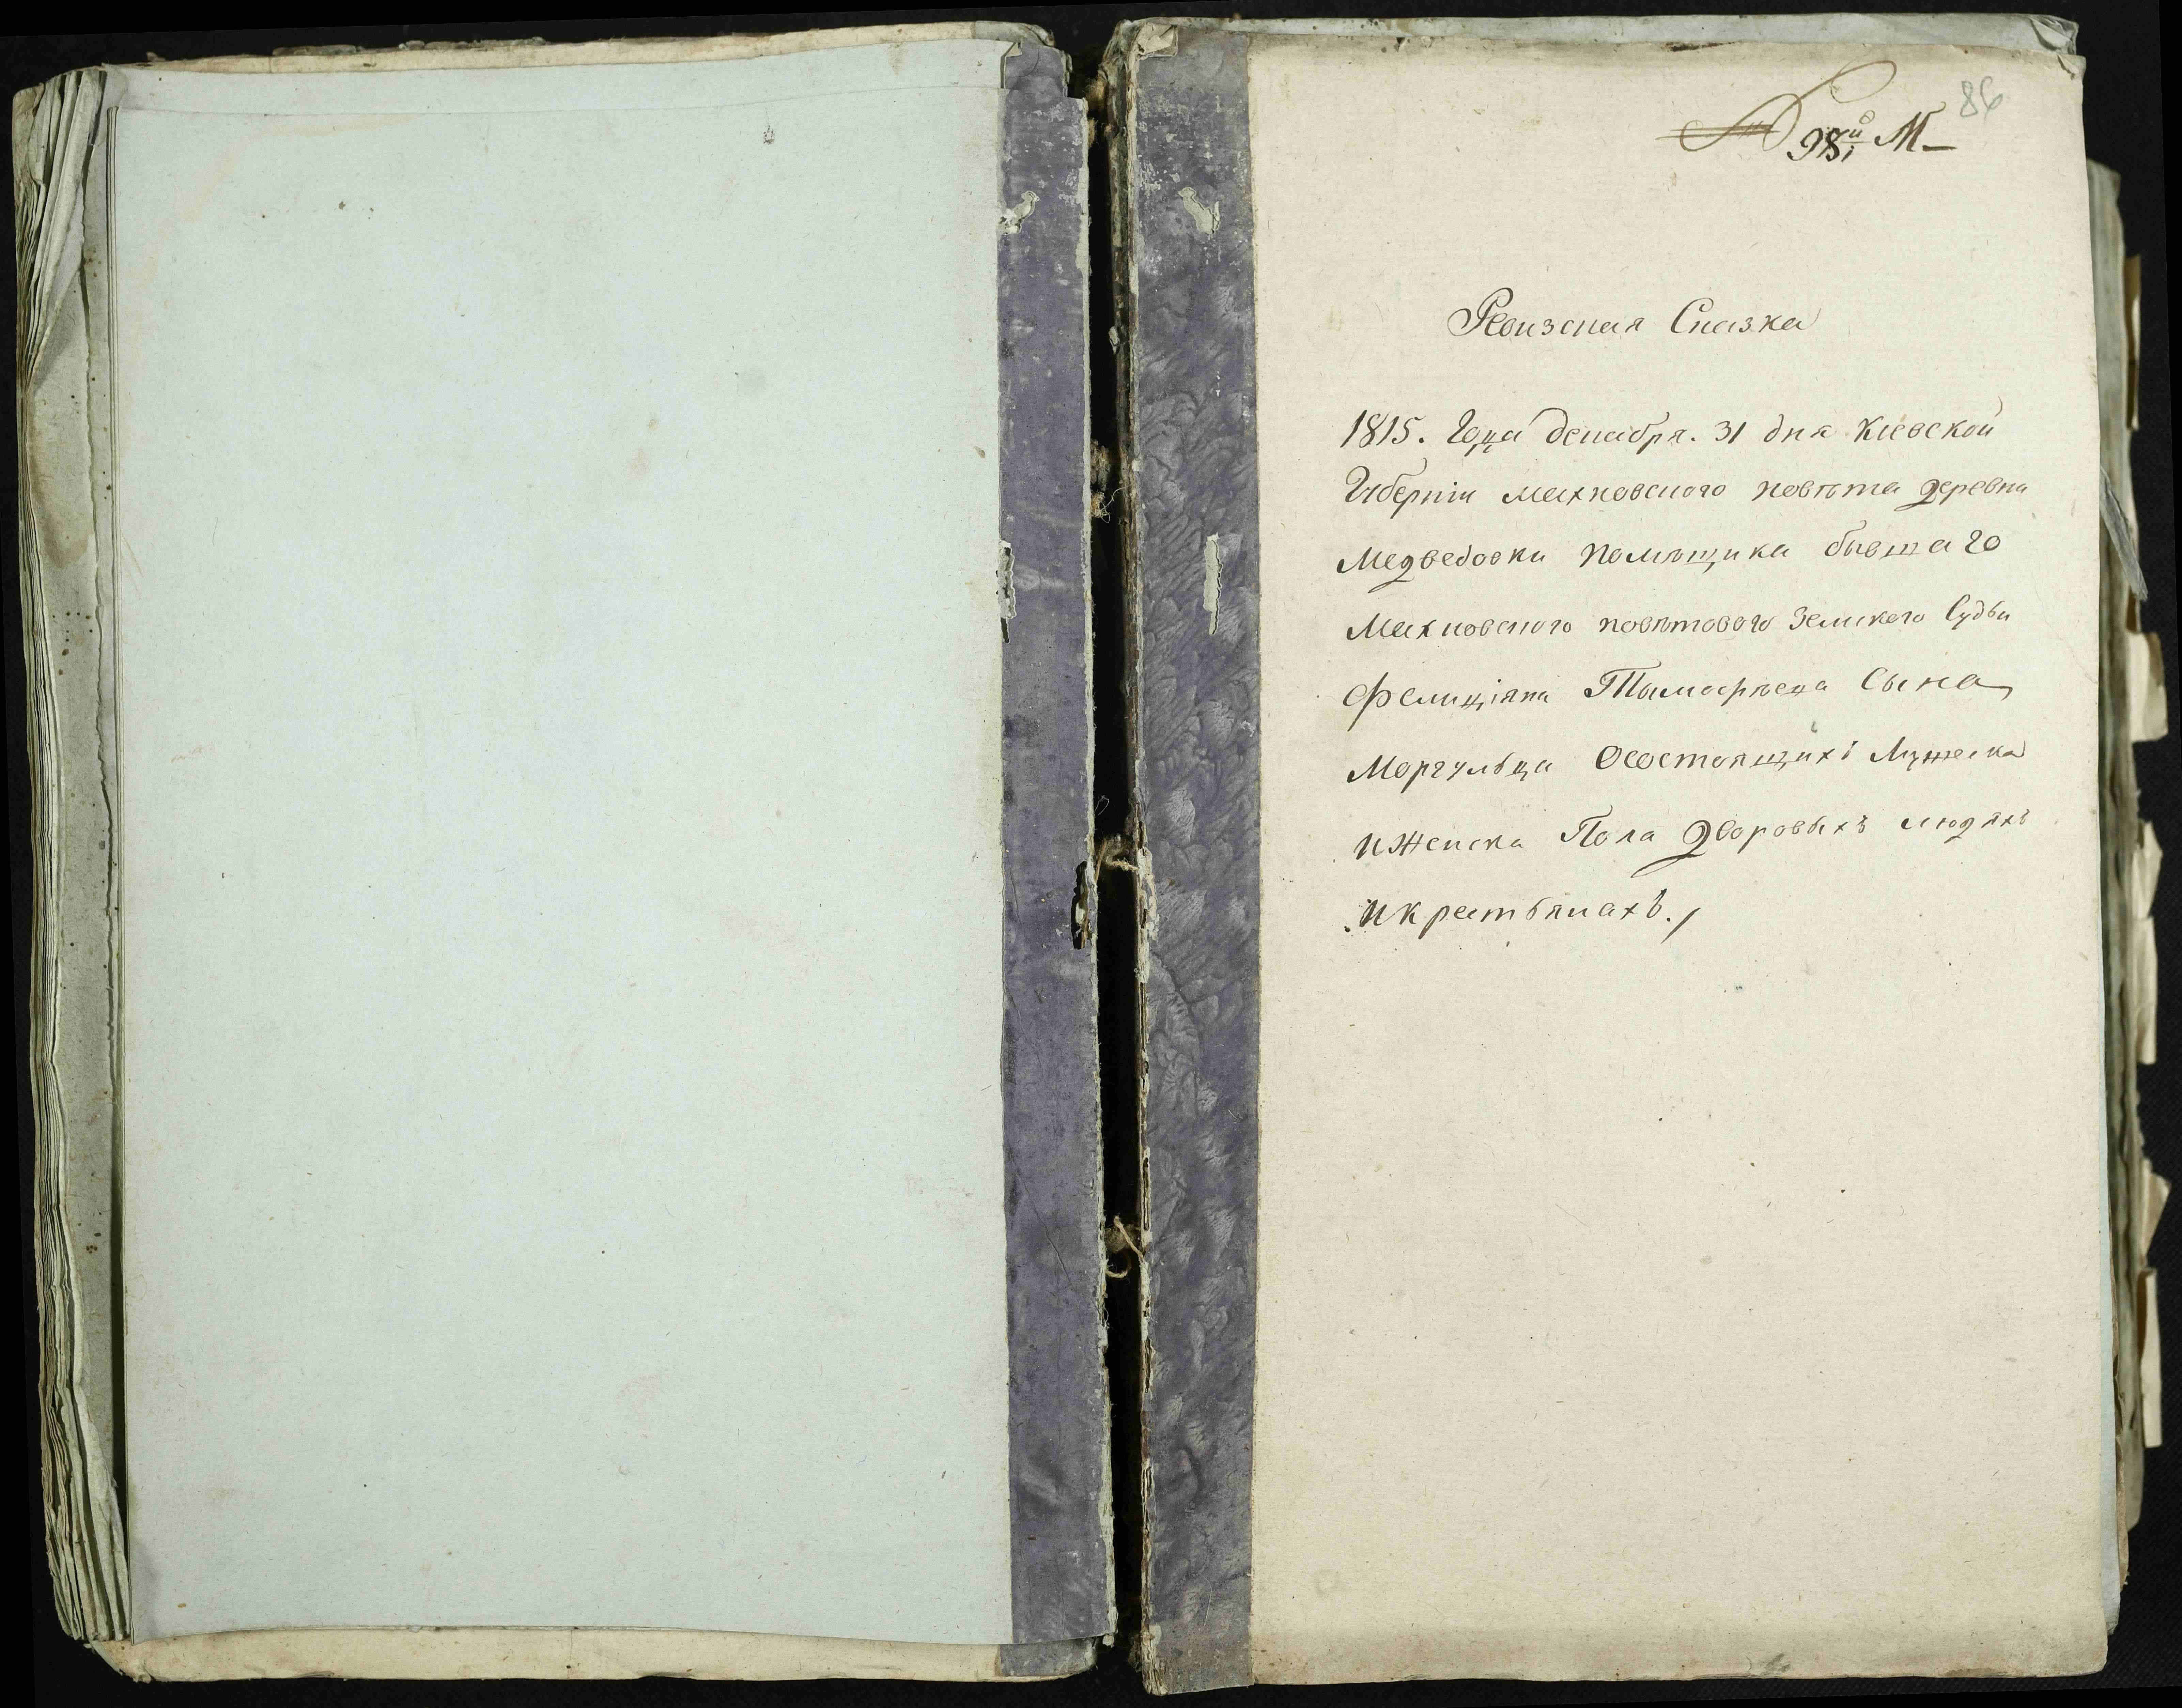 86
98й М
Ревизская Сказка
1815. Года декабря. 31 дня Киевской
Губерніи махновского повѣта деревни
Медведовки помѣщика бывшаго
Махновского повѣтового Земского Судьи
Фелиціяна сына
Моргульца Осостоящихъ Мужеска
и Женска Пола дворовыхъ людяхъ
и крестьянахъ.